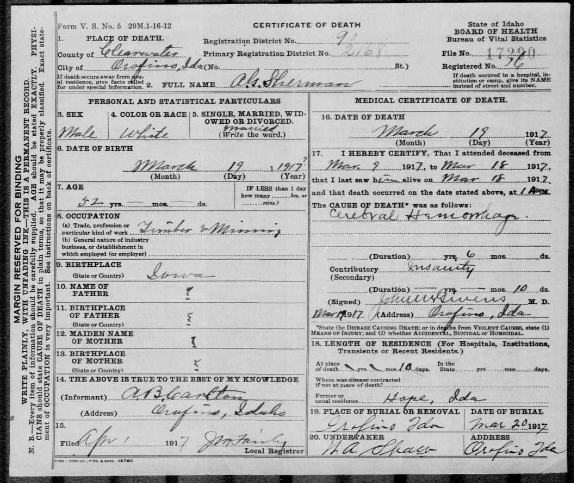 Form V. S. No. 5 20M.1-16-12
CERTIFICATE OF DEATH
State of Idaho
BOARD OF HEALTH
Bureau of Vital Statistics
1. PLACE OF DEATH.
Registration District No.
County of Clearwater
Primary Registration District No. 2168
File No. 17290
City of Orofino, Ida (No. St.)
Registered No. 76
If death occurs away from usual residence, give facts called for under special information.
If death occurred in a hospital, institution or camp, give its NAME instead of street and number.
2. FULL NAME A.G. Sherman
PERSONAL AND STATISTICAL PARTICULARS
3. SEX
Male
4. COLOR OR RACE
White
5. SINGLE, MARRIED, WIDOWED OR DIVORCED.
married
(Write the word.)
6. DATE OF BIRTH
March 19 1917?
(Month) (Day) (Year)
7. AGE
IF LESS than 1 day
how many hrs. or
min.?
52 yrs. mos. ds.
8. OCCUPATION
(a) Trade, profession or particular kind of work Timber & Mining
(b) General nature of industry
business, or establishment in
which employed (or employer)
9. BIRTHPLACE
(State or Country) Iowa
10. NAME OF FATHER ?
11. BIRTHPLACE OF FATHER ?
(State or Country)
12. MAIDEN NAME OF MOTHER ?
13. BIRTHPLACE OF MOTHER ?
(State or Country)
14. THE ABOVE IS TRUE TO THE BEST OF MY KNOWLEDGE
(Informant) A.B. Carlton
(Address) Orofino, Idaho
15.
Filed Apr 1 1917
Local Registrar
MEDICAL CERTIFICATE OF DEATH.
16. DATE OF DEATH
March 19 1917
(Month) (Day) (Year)
17. I HEREBY CERTIFY, That I attended deceased from
Mar. 9 1917, to Mar 18 1917,
that I last saw him alive on Mar 18 1917
and that death occurred on the date stated above, at 1
The CAUSE OF DEATH* was as follows:
Cerebral Hemorrhage.
(Duration) yrs. 6 mos. ds.
Contributory Insanity
(Secondary)
(Duration) yrs. mos. 10 ds.
(Signed) M. D.
Mar 19 1917 (Address) Orofino, Ida
*State the DISEASE CAUSING DEATH; or in deaths from VIOLENT CAUSES, state (1) MEANS OF INJURY; and (2) whether ACCIDENTAL, SUICIDAL OR HOMICIDAL.
18. LENGTH OF RESIDENCE (For Hospitals, Institutions, Transients or Recent Residents.)
At place of death yrs. mos. 10 days. In the State yrs. mos. days.
Where was disease contracted
if not at place of death?
Former or usual residence Hope, Ida
19. PLACE OF BURIAL OR REMOVAL
Orofino Ida
DATE OF BURIAL
Mar 20 1917
20. UNDERTAKER
Shaw
ADDRESS
Orofino Ida
MARGIN RESERVED FOR BINDING
WRITE PLAINLY, WITH UNFADING INK—THIS IS A PERMANENT RECORD.
N. B.—Every item of information should be carefully supplied. AGE should be stated EXACTLY. PHYSICIANS should state CAUSE OF DEATH in plain terms, so that it may be properly classified. Exact statement of OCCUPATION is very important. See instructions on back of certificate.